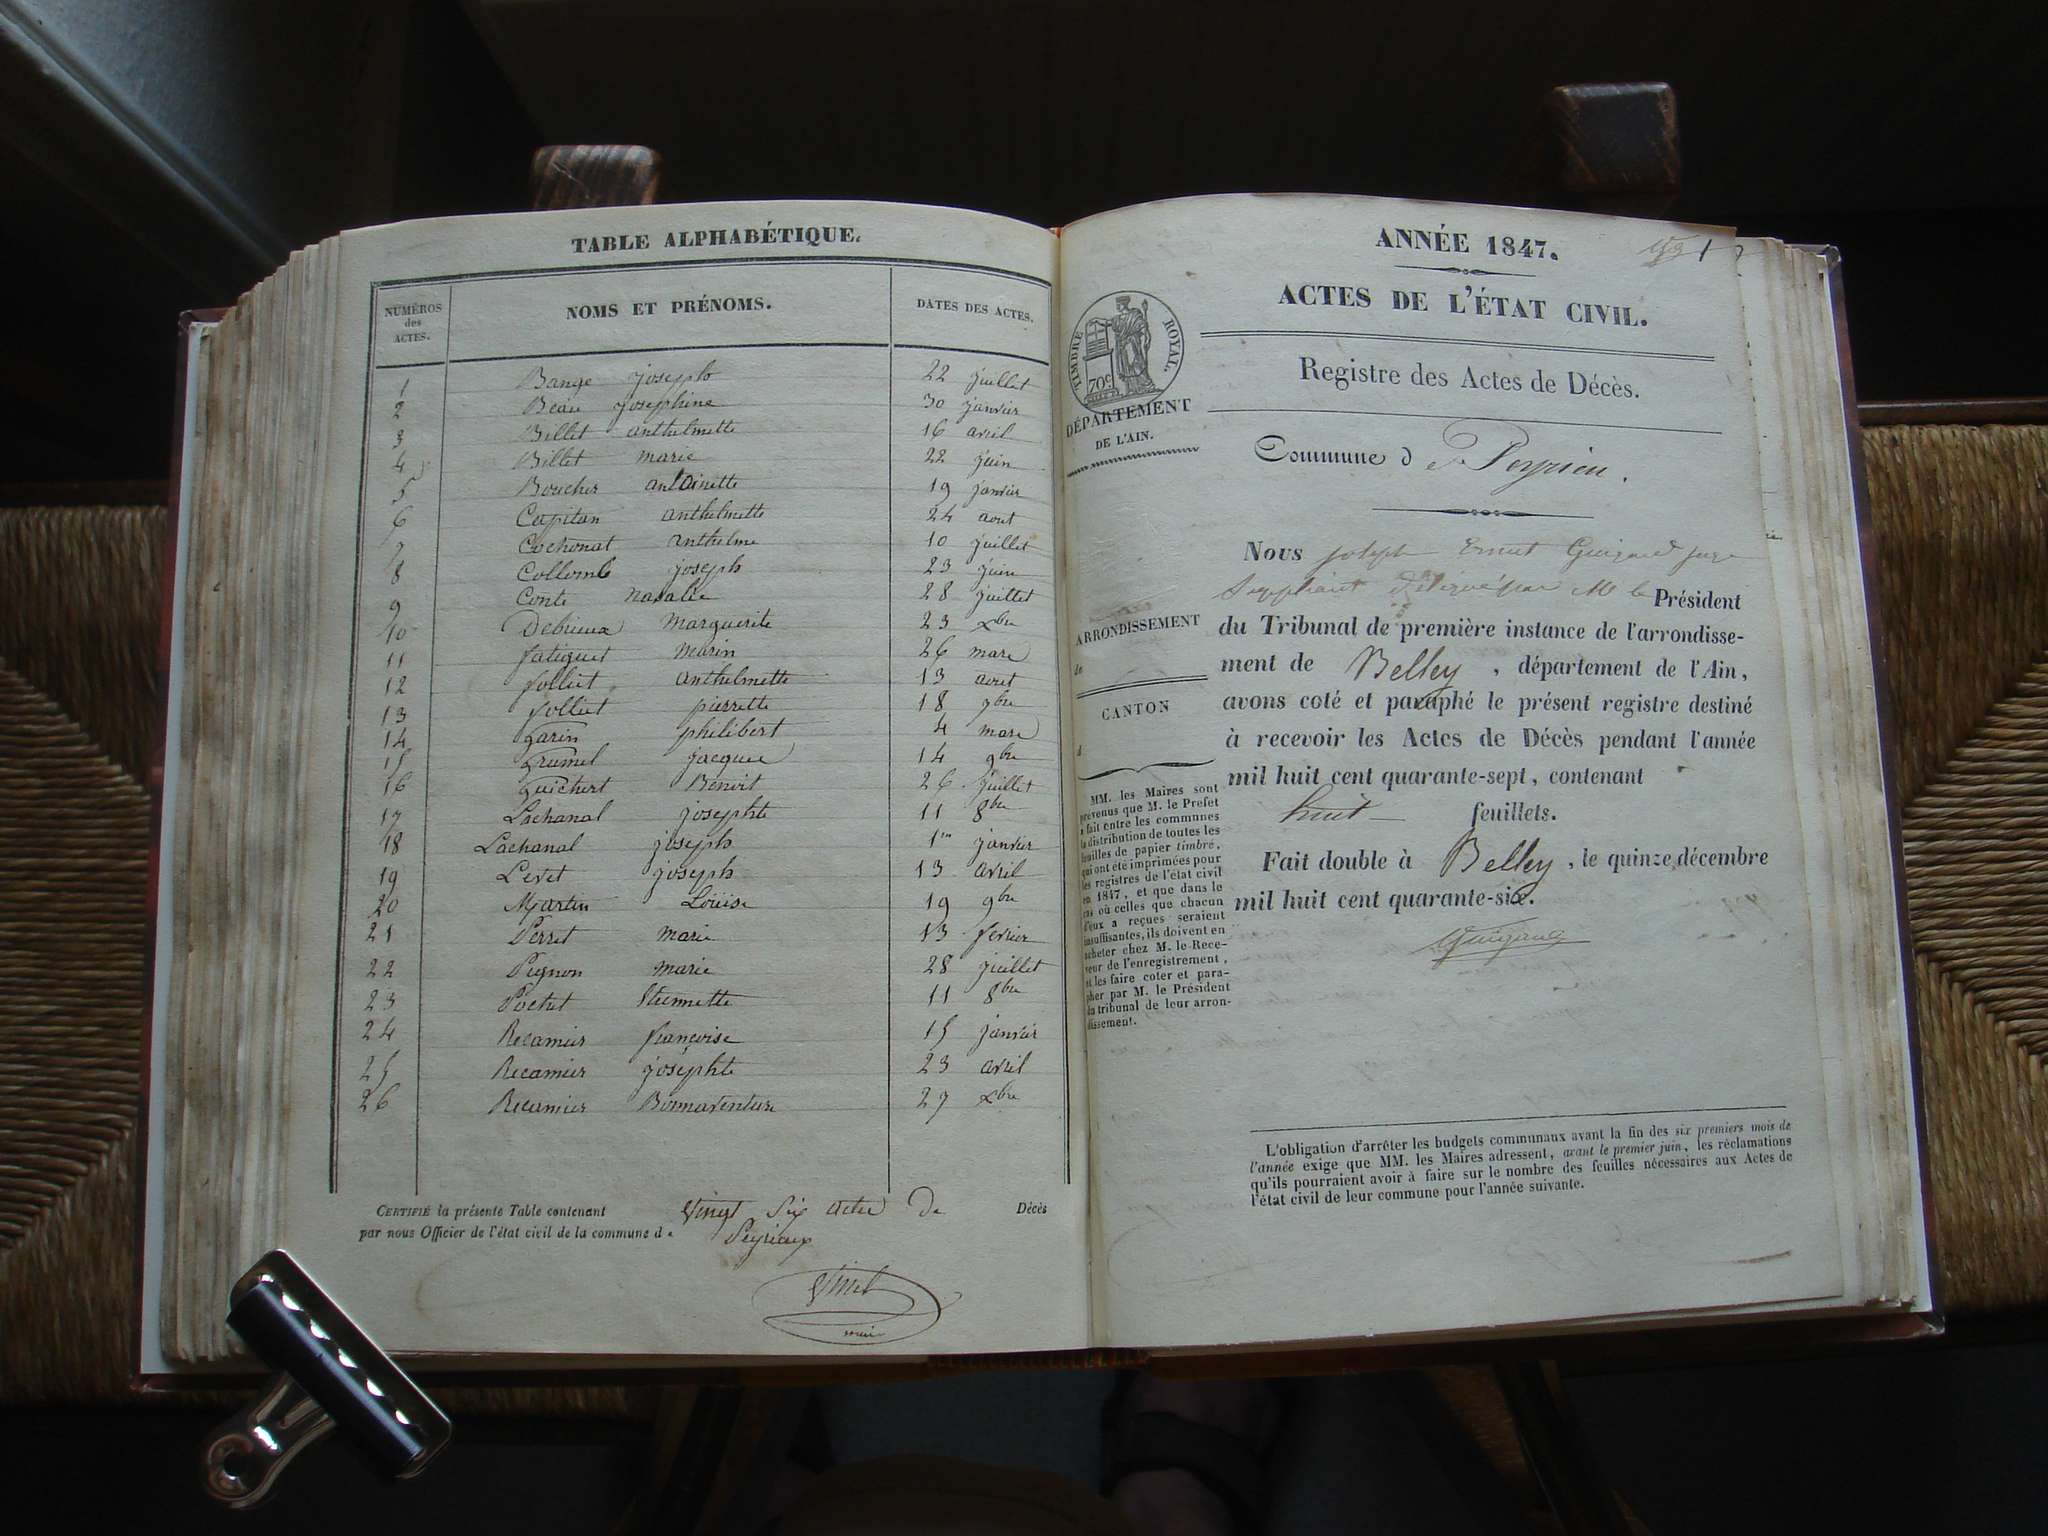 TABLE ALPHABÉTIQUE.
NUMÉROS des ACTES. NOMS ET PRÉNOMS. DATES DES ACTES.
1 Bange joseph 22 juillet
2 Beau josephine 30 janvier
3 Billet anthelmette 16 avril
4 Billet marie 22 juin
5 Boucher antoinette 19 janvier
6 Capitan anthelmette 24 aout
7 Cochonat anthelme 10 juillet
8 Collomb joseph 23 juin
9 Conte natalie 28 juillet
10 Debrieux marguerite 23 xbre
11 fatiguet marin 26 mars
12 folliet anthelmette 13 aout
13 folliet pierrette 18 9bre
14 Garin philibert 4 mars
15 Grumel jacques 14 9bre
16 Guichert Benoit 26 juillet
17 Lachanal josephte 11 8bre
18 Lachanal joseph 1er janvier
19 Levet joseph 13 avril
20 Martin Louise 19 9bre
21 Perret marie 13 fevrier
22 Pignon marie 28 juillet
23 Pochet Etiennette 11 8bre
24 Recamier françoise 15 janvier
25 Recamier josephte 23 avril
26 Recamier Bonnaventure 27 xbre
CERTIFIÉ la présente Table contenant Vingt Six actes de Décès
par nous Officier de l'état civil de la commune de Peyrieux
maire
1
ANNÉE 1847.
ACTES DE L'ÉTAT CIVIL.
TIMBRE ROYAL.
70c
DÉPARTEMENT
DE L'AIN.
Registre des Actes de Décès.
Commune de Peyrieu.
Nous joseph Ernest Guigard juge
Suppléant délégué par Mr le Président
du Tribunal de première instance de l'arrondisse-
ment de Belley, département de l'Ain,
avons coté et paraphé le présent registre destiné
à recevoir les Actes de Décès pendant l'année
mil huit cent quarante-sept, contenant
huit feuillets.
Fait double à Belley, le quinze décembre
mil huit cent quarante-six.
ARRONDISSEMENT
de
CANTON
d
MM. les Maires sont
prévenus que M. le Préfet
a fait entre les communes
la distribution de toutes les
feuilles de papier timbré,
qui ont été imprimées pour
les registres de l'état civil
en 1847, et que dans le
cas où celles que chacun
d'eux a reçues seraient
insuffisantes, ils doivent en
acheter chez M. le Rece-
veur de l'enregistrement,
et les faire coter et para-
pher par M. le Président
du tribunal de leur arron-
dissement.
L'obligation d'arrêter les budgets communaux avant la fin des six premiers mois de
l'année exige que MM. les Maires adressent, avant le premier juin, les réclamations
qu'ils pourraient avoir à faire sur le nombre des feuilles nécessaires aux Actes de
l'état civil de leur commune pour l'année suivante.